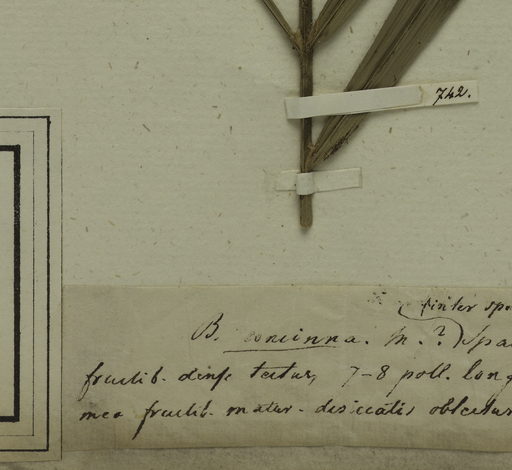 742.
(inter spe
B. concinna. m.? Spa
fructib. dense tectus, 7-8 poll. long
mea fructib. matur. desiccatis oblectus